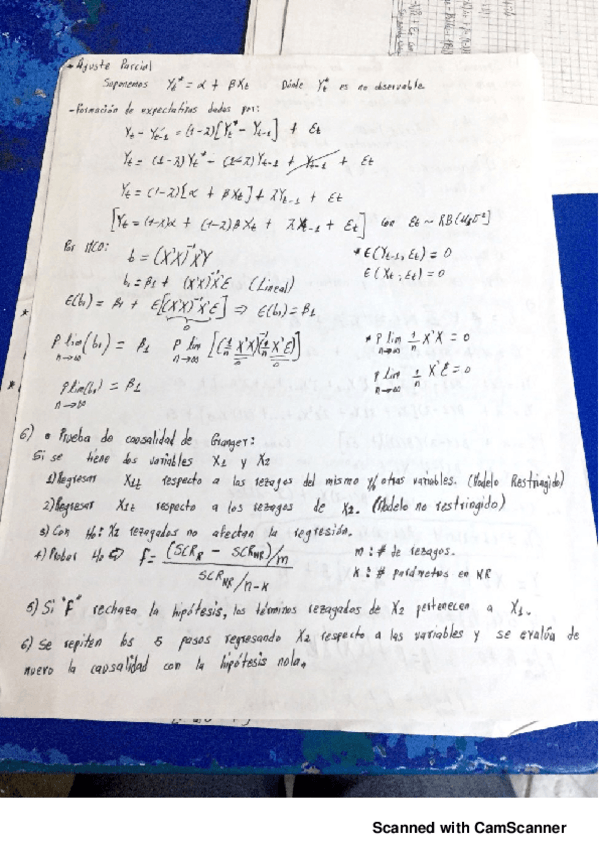 * Ajuste Parcial
Suponemos Yt* = α + βXt Dónde Yt* es no observable.
- Formación de expectativas dadas por:
Yt - Yt-1 = (1-λ)[Yt* - Yt-1] + Et
Yt = (1-λ)Yt* - (1-λ)Yt-1 + Yt-1 + Et
Yt = (1-λ)[α + βXt] + λYt-1 + Et
[Yt = (1-λ)α + (1-λ)βXt + λYt-1 + Et] Con Et ~ RB(0,σ²]
Por MCO: b = (X'X)⁻¹X'Y * E(Yt-1, Et) = 0
b1 = β1 + (X'X)⁻¹X'E (Lineal) E(Xt, Et) = 0
E(b1) = β1 + E[(X'X)⁻¹X'E] ⇒ E(b1) = β1
0
P lim(b1) = β1 P lim [(1/n X'X)⁻¹(1/n X'E)] * P lim 1/n X'X = 0
n→∞ n→∞ n→∞
plim(b1) = β1 P lim 1/n X'E = 0
n→∞ n→∞
6) • Prueba de causalidad de Granger:
Si se tiene dos variables X1 y X2
1) Regresar X1t respecto a los rezagos del mismo y/ otras variables. (Modelo Restringido)
2) Regresar X1t respecto a los rezagos de X2. (Modelo no restringido)
3) Con Ho: X2 rezagados no afectan la regresión.
4) Probar Ho ⇔ F = (SCR_R - SCR_NR)/m m: # de rezagos.
SCR_NR/n-k k: # parámetros en NR
5) Si "F" rechaza la hipótesis, los términos rezagados de X2 pertenecen a X1.
6) Se repiten los 5 pasos regresando X2 respecto a las variables y se evalúa de
nuevo la causalidad con la hipótesis nola.
Scanned with CamScanner